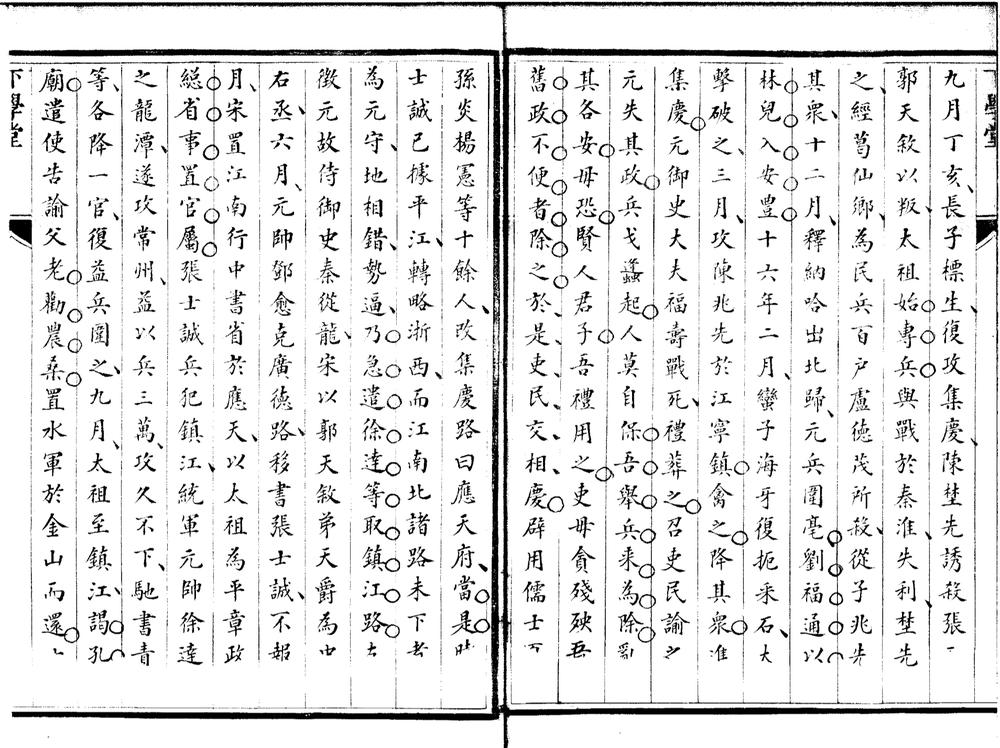 九月丁亥長子標生復攻集慶陳埜先誘殺張
郭天敘以叛太祖始專兵與戰於秦淮失利埜先
之經葛仙鄉為民兵百戶盧德茂所殺從子兆先
其衆十二月釋納哈出北歸元兵圍亳劉福通以
林兒入安豊十六年二月蠻子海牙復扼采石大
擊破之三月攻陳兆先於江寧鎮禽之降其衆進
集慶元御史大夫福壽戰死禮葬之召吏民諭之
元失其政兵戈蠭起人莫自保吾舉兵来為除亂
其各安毋恐賢人君子吾禮用之吏毋貪殘殃吾
舊政不便者除之於是吏民交相慶辟用儒士
孫炎楊憲等十餘人改集慶路曰應天府當是時
士誠已據平江轉略浙西而江南北諸路未下者
為元守地相錯勢逼乃急遣徐達等取鎮江路
徵元故侍御史秦從龍宋以郭天敘弟天爵為中
右丞六月元帥鄧愈克廣德路移書張士誠不報
月宋置江南行中書省於應天以太祖為平章政
總省事置官屬張士誠兵犯鎮江統軍元帥徐達
之龍潭遂攻常州益以兵三萬攻久不下馳書責
等各降一官復益兵圍之九月太祖至鎮江謁孔
廟遣使告諭父老勸農桑置水軍於金山而還
下學堂